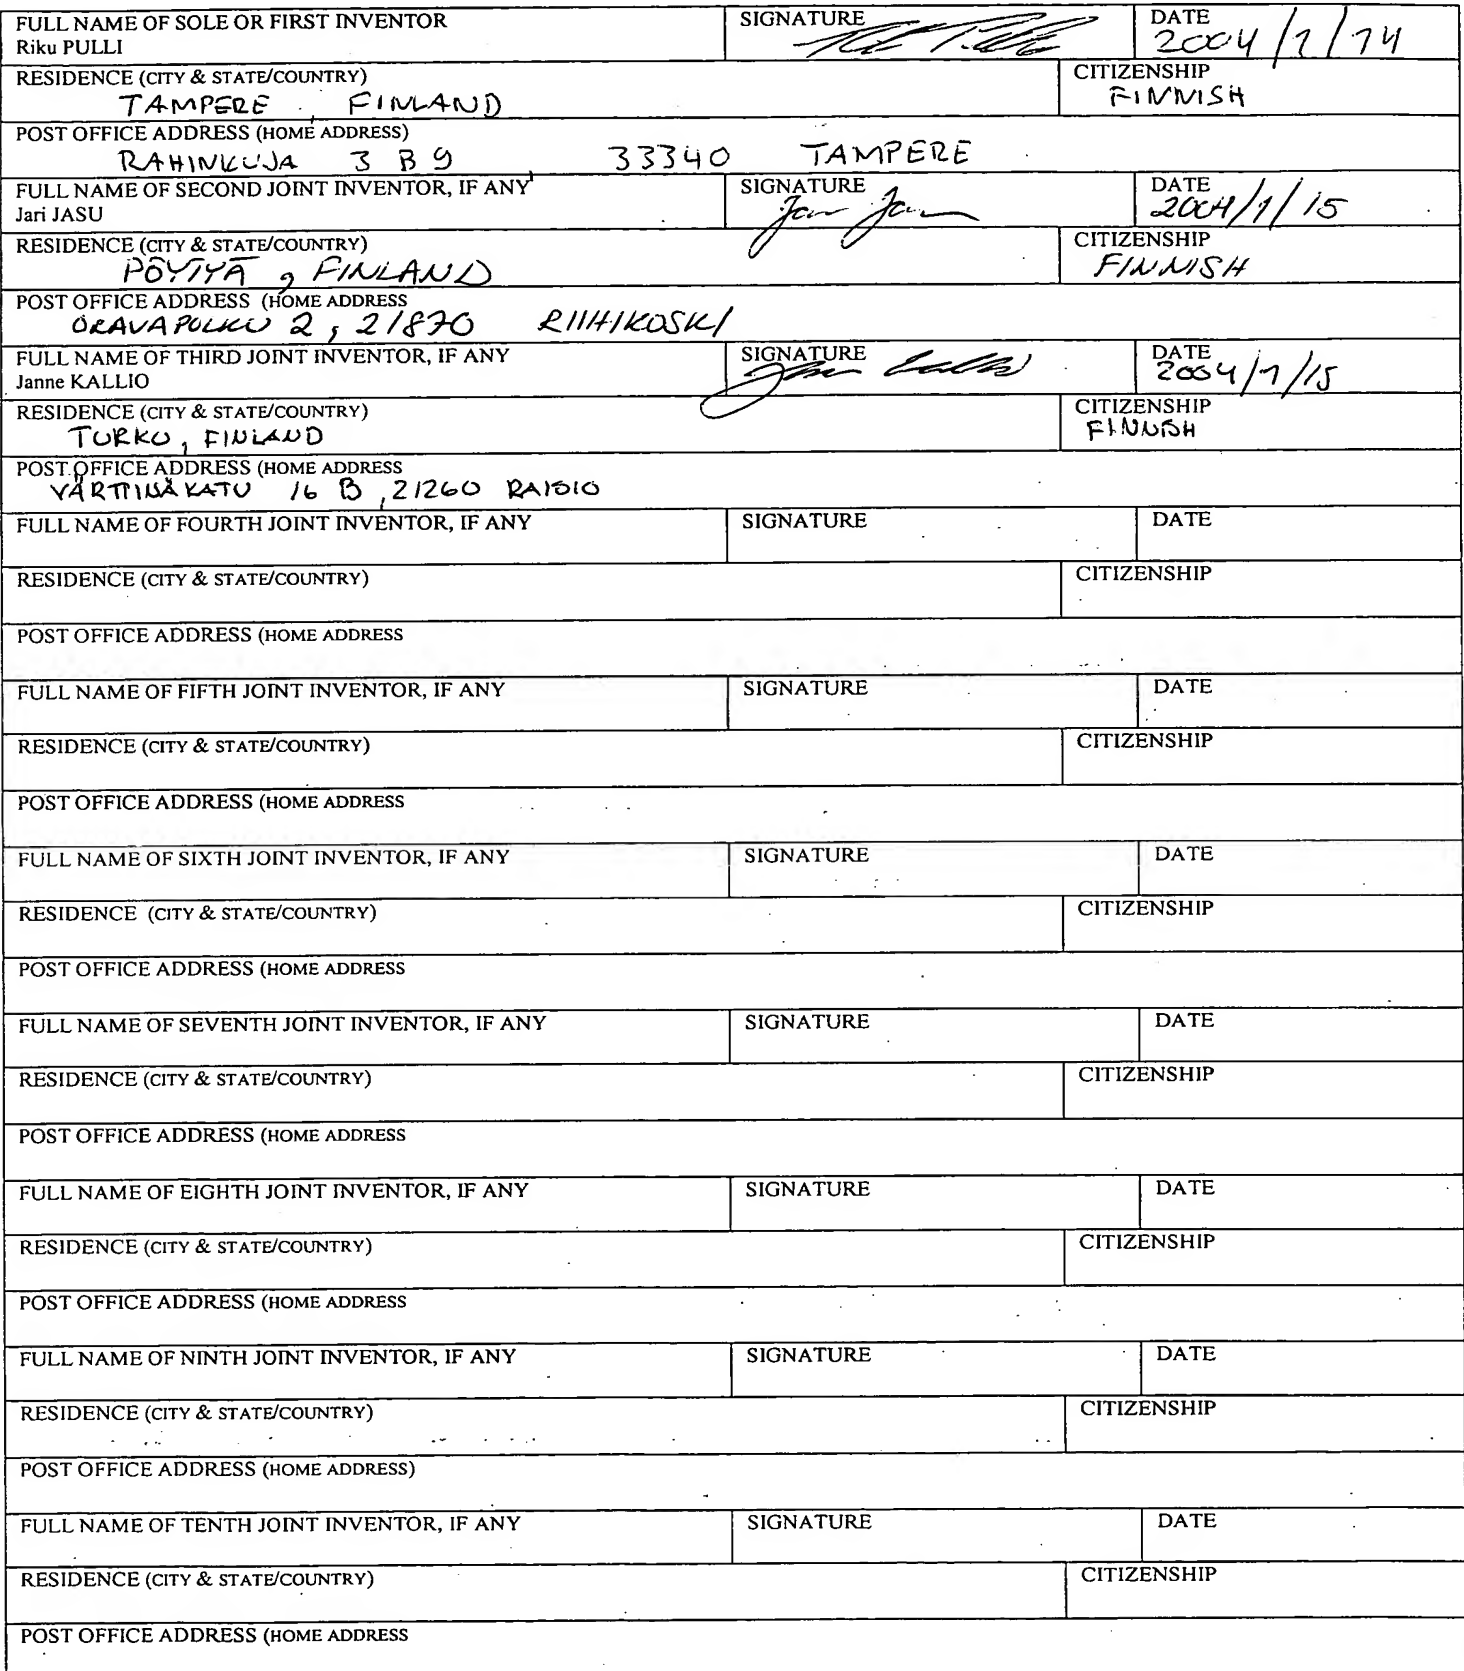 FULL NAME OF SOLE OR FIRST INVENTOR SIGNATURE DATE
Riku PULLI 2004/1/14
RESIDENCE (CITY & STATE/COUNTRY) CITIZENSHIP
TAMPERE, FINLAND FINNISH
POST OFFICE ADDRESS (HOME ADDRESS)
RAHINKUJA 3 B 9, 33340 TAMPERE
FULL NAME OF SECOND JOINT INVENTOR, IF ANY SIGNATURE DATE
Jari JASU 2004/1/15
RESIDENCE (CITY & STATE/COUNTRY) CITIZENSHIP
PÖYTYÄ, FINLAND FINNISH
POST OFFICE ADDRESS (HOME ADDRESS
ORAVAPOLKU 2, 21870 RIIHIKOSKI
FULL NAME OF THIRD JOINT INVENTOR, IF ANY SIGNATURE DATE
Janne KALLIO 2004/1/15
RESIDENCE (CITY & STATE/COUNTRY) CITIZENSHIP
TURKU, FINLAND FINNISH
POST OFFICE ADDRESS (HOME ADDRESS
VÄRTTINÄKATU 16 B, 21260 RAISIO
FULL NAME OF FOURTH JOINT INVENTOR, IF ANY SIGNATURE DATE
RESIDENCE (CITY & STATE/COUNTRY) CITIZENSHIP
POST OFFICE ADDRESS (HOME ADDRESS
FULL NAME OF FIFTH JOINT INVENTOR, IF ANY SIGNATURE DATE
RESIDENCE (CITY & STATE/COUNTRY) CITIZENSHIP
POST OFFICE ADDRESS (HOME ADDRESS
FULL NAME OF SIXTH JOINT INVENTOR, IF ANY SIGNATURE DATE
RESIDENCE (CITY & STATE/COUNTRY) CITIZENSHIP
POST OFFICE ADDRESS (HOME ADDRESS
FULL NAME OF SEVENTH JOINT INVENTOR, IF ANY SIGNATURE DATE
RESIDENCE (CITY & STATE/COUNTRY) CITIZENSHIP
POST OFFICE ADDRESS (HOME ADDRESS
FULL NAME OF EIGHTH JOINT INVENTOR, IF ANY SIGNATURE DATE
RESIDENCE (CITY & STATE/COUNTRY) CITIZENSHIP
POST OFFICE ADDRESS (HOME ADDRESS
FULL NAME OF NINTH JOINT INVENTOR, IF ANY SIGNATURE DATE
RESIDENCE (CITY & STATE/COUNTRY) CITIZENSHIP
POST OFFICE ADDRESS (HOME ADDRESS)
FULL NAME OF TENTH JOINT INVENTOR, IF ANY SIGNATURE DATE
RESIDENCE (CITY & STATE/COUNTRY) CITIZENSHIP
POST OFFICE ADDRESS (HOME ADDRESS